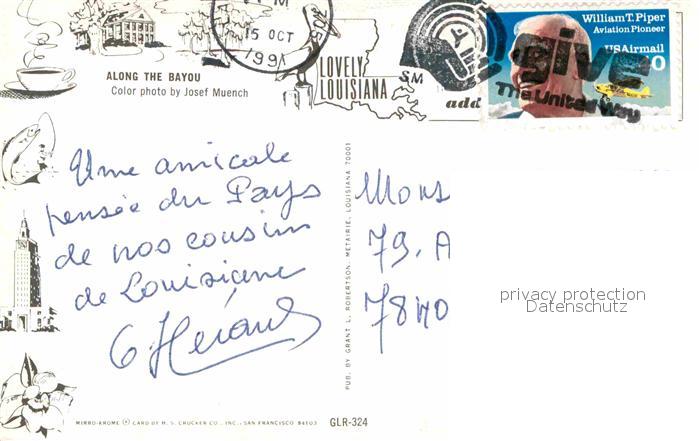 PM
15 OCT
1991
705
William T. Piper
Aviation Pioneer
USAirmail
40
Give
The United Way
ALONG THE BAYOU
Color photo by Josef Muench
LOVELY
LOUISIANA
add
Une amicale
pensée du Pays
de nos cousins
de Louisiane
G Héraud
Mons
79, A
78110
PUB. BY GRANT L. ROBERTSON, METAIRIE, LOUISIANA 70001
privacy protection
Datenschutz
MIRRO-KROME ® CARD BY H. S. CROCKER CO., INC., SAN FRANCISCO 94103
GLR-324